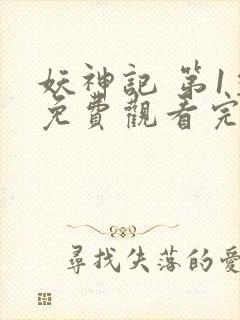 妖神記 第1
免費觀看完
尋找失落的愛